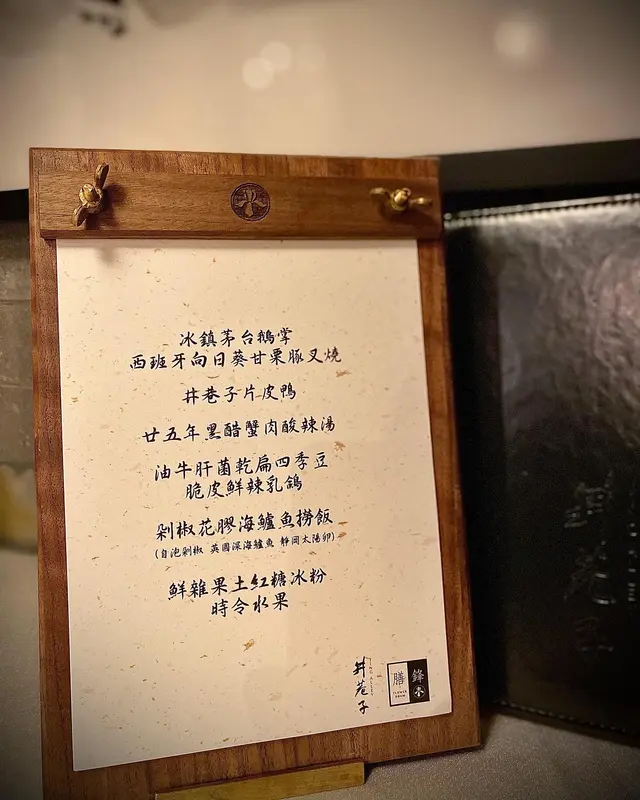 冰鎮茅台鵝掌
西班牙向日葵甘栗豚叉燒
井巷子片皮鴨
廿五年黑醋蟹肉酸辣湯
油牛肝菌乾扁四季豆
脆皮鮮辣乳鴿
剁椒花膠海鱸魚撈飯
(自泡剁椒 英國深海鱸魚 靜岡太陽卵)
鮮雜果土紅糖冰粉
時令水果
井巷子
JING ALLEY
膳鋒
FLOWER DRUM